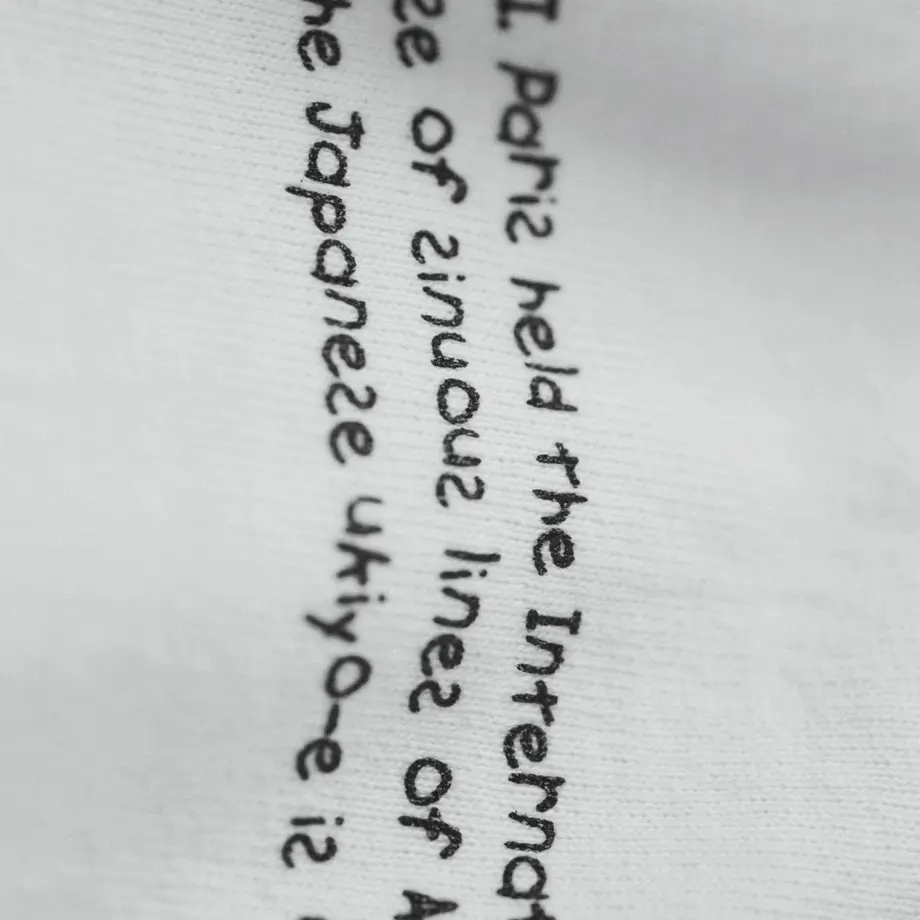 I Paris held the Internat
se of sinuous lines of A
he Japanese ukiyo-e is